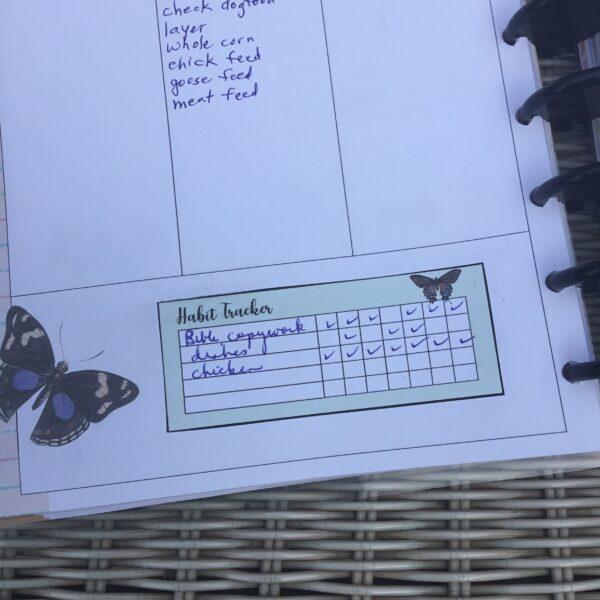 check dogfood
layer
whole corn
chick feed
goose feed
meat feed
Habit Tracker
Bible copywork ✓ ✓ ✓ ✓ ✓ ✓
dishes ✓ ✓ ✓
chicken ✓ ✓ ✓ ✓ ✓ ✓ ✓